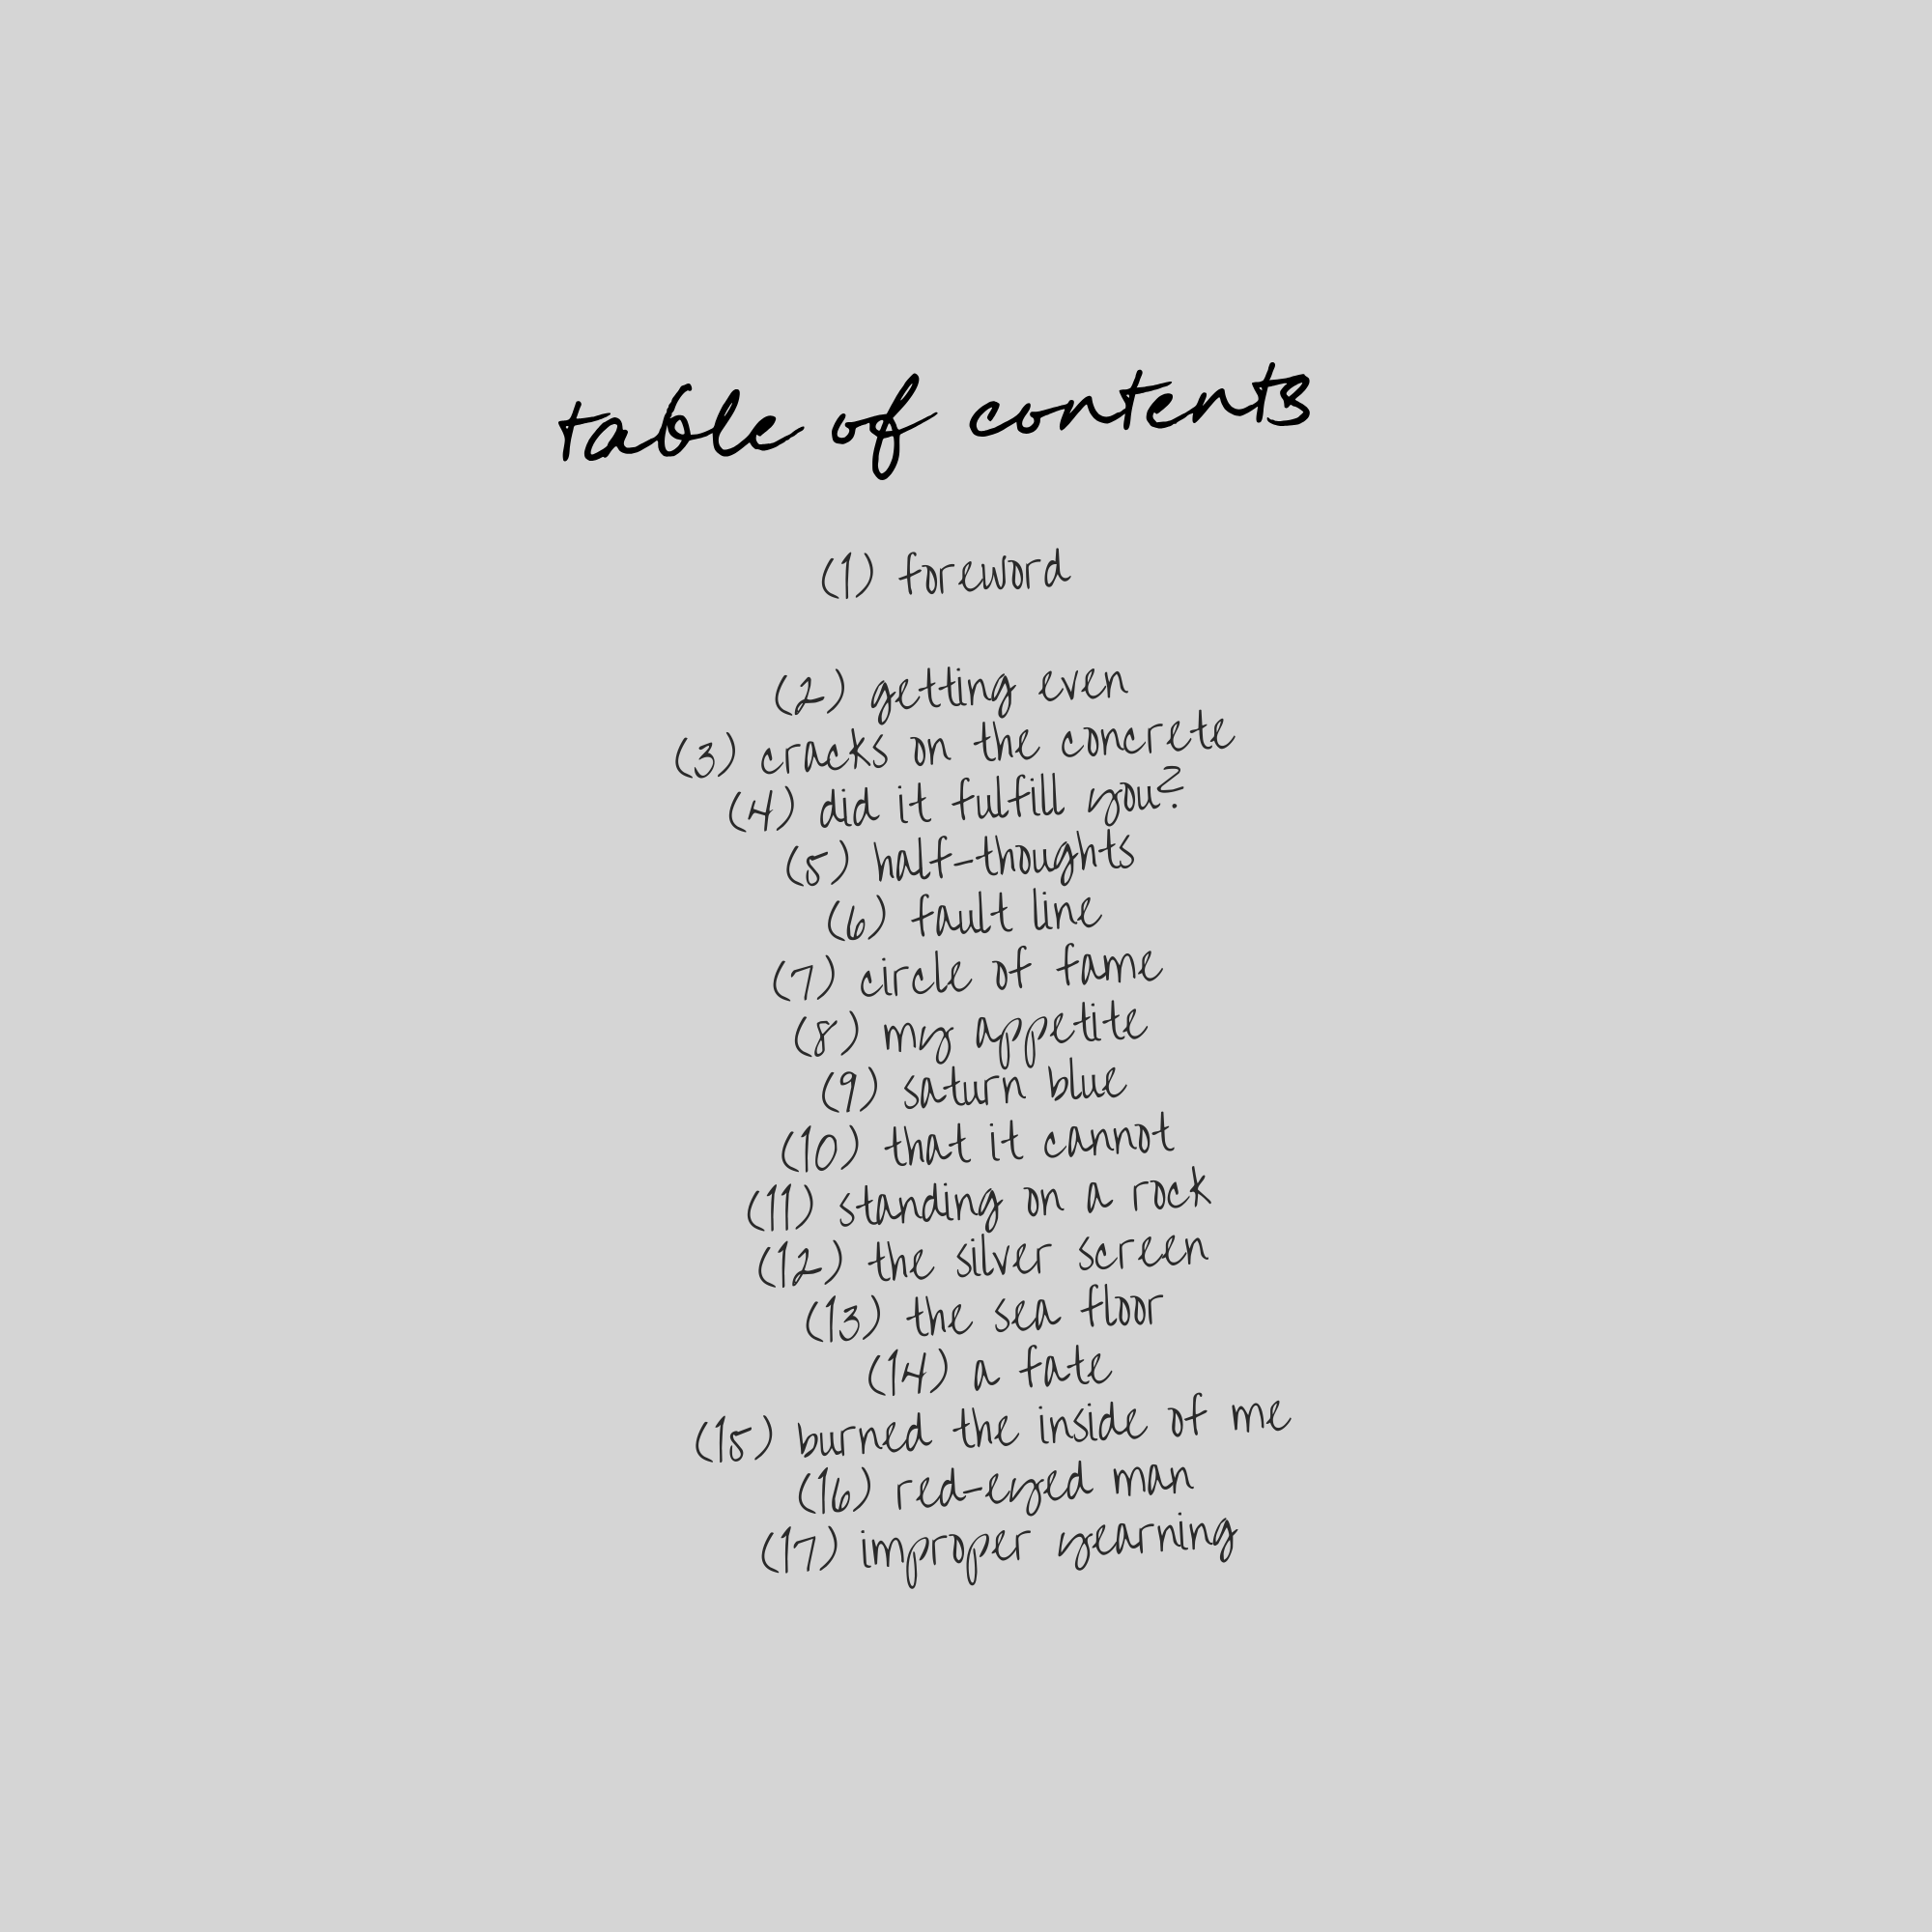 table of contents
(1) foreword
(2) getting even
(3) cracks on the concrete
(4) did it fulfill you?
(5) half-thoughts
(6) fault line
(7) circle of fame
(8) my appetite
(9) saturn blue
(10) that it cannot
(11) standing on a rock
(12) the silver screen
(13) the sea floor
(14) a fate
(15) burned the inside of me
(16) red-eyed man
(17) improper yearning